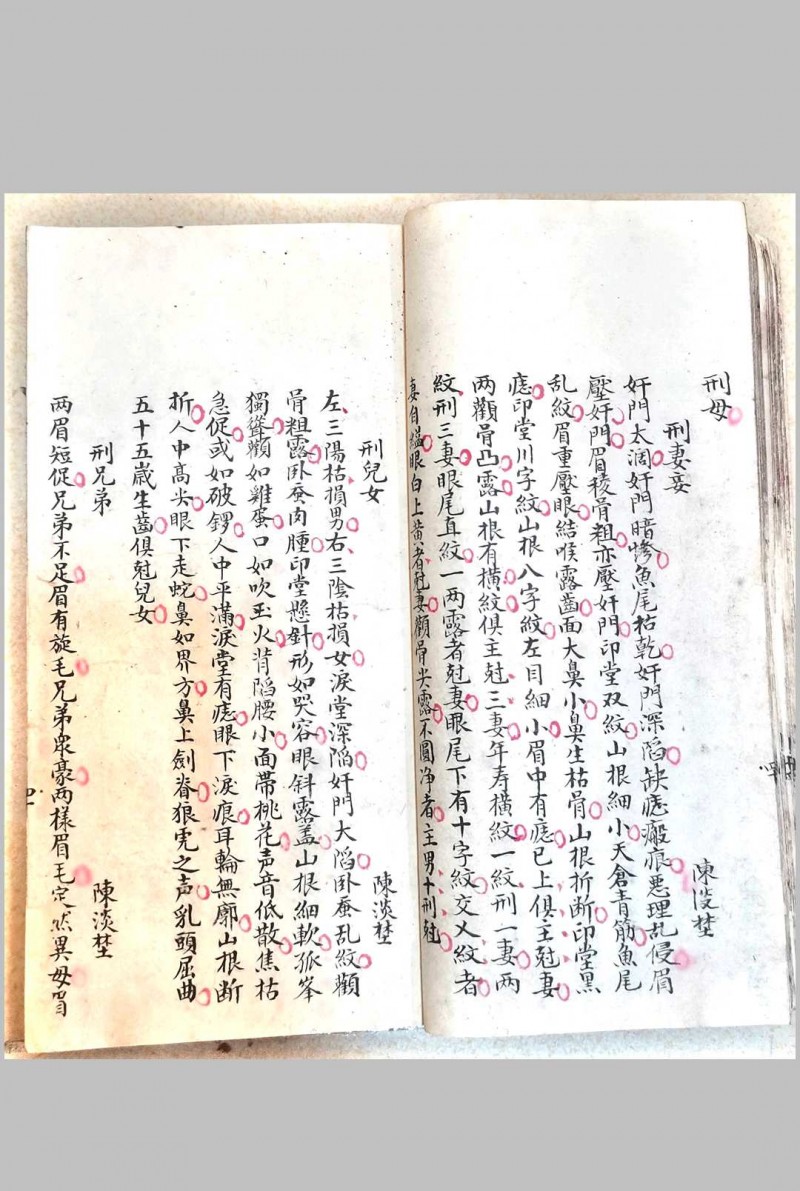 刑母
刑妻妾 陳淡埜
奸門太濶奸門暗慘魚尾枯乾奸門深陷缺痣瘢痕悪理乱侵眉
壓奸門眉稜骨粗亦壓奸門印堂双紋山根細小天倉青筋魚尾
乱紋眉重壓眼結喉露齒面大鼻小鼻生枯骨山根折断印堂黑
痣印堂川字紋山根八字紋左目細小眉中有痣已上俱主尅妻
两顴骨凸露山根有橫紋俱主尅三妻年寿橫紋一紋刑一妻两
紋刑三妻眼尾直紋一两露者尅妻眼尾下有十字紋交乂紋者
妻自縊眼白上黃者尅妻顴骨尖露不圓净者主男十刑尅
刑兒女 陳淡埜
左三陽枯損男右三陰枯損女淚堂深陷奸門大陷卧蚕乱紋顴
骨粗露卧蚕肉腫印堂懸針形如哭容眼斜露蓋山根細軟孤峯
獨聳顴如雞蛋口如吹玉火背陷腰小面帶桃花声音低散焦枯
急促或如破鑼人中平滿淚堂有痣眼下淚痕耳輪無廓山根断
折人中高尖眼下走蛇鼻如界方鼻上劍脊狼虎之声乳頭屈曲
五十五歲生齒俱尅兒女
刑兄弟 陳淡埜
两眉短促兄弟不足眉有旋毛兄弟衆豪两樣眉毛定然異母眉